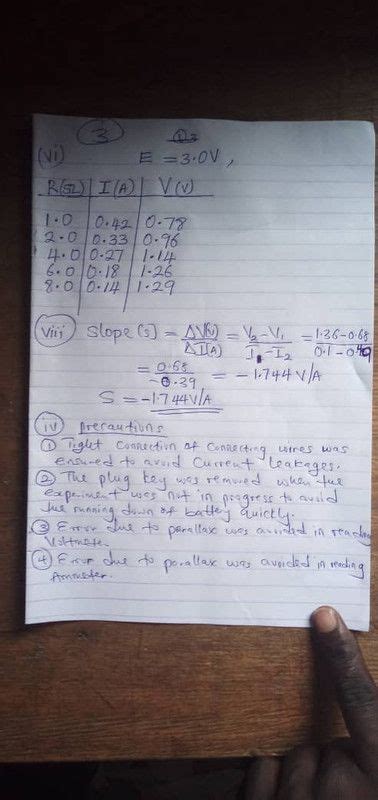 3
(vi) E = 3.0V,
R(Ω) I(A) V(V)
1.0 0.42 0.78
2.0 0.33 0.96
4.0 0.27 1.14
6.0 0.18 1.26
8.0 0.14 1.29
(viii) Slope (s) = ΔV(V)/ΔI(A) = V2-V1/I1-I2 = 1.36-0.68/0.1-0.49
= 0.68/-0.39 = -1.744 V/A
S = -1.744V/A
(iv) precautions
(1) Tight connection of connecting wires was
ensured to avoid current leakages.
(2) The plug key was removed when the
experiment was not in progress to avoid
the running down of battery quickly.
(3) Error due to parallax was avoided in reading
Voltmeter.
(4) Error due to parallax was avoided in reading
Ammeter.